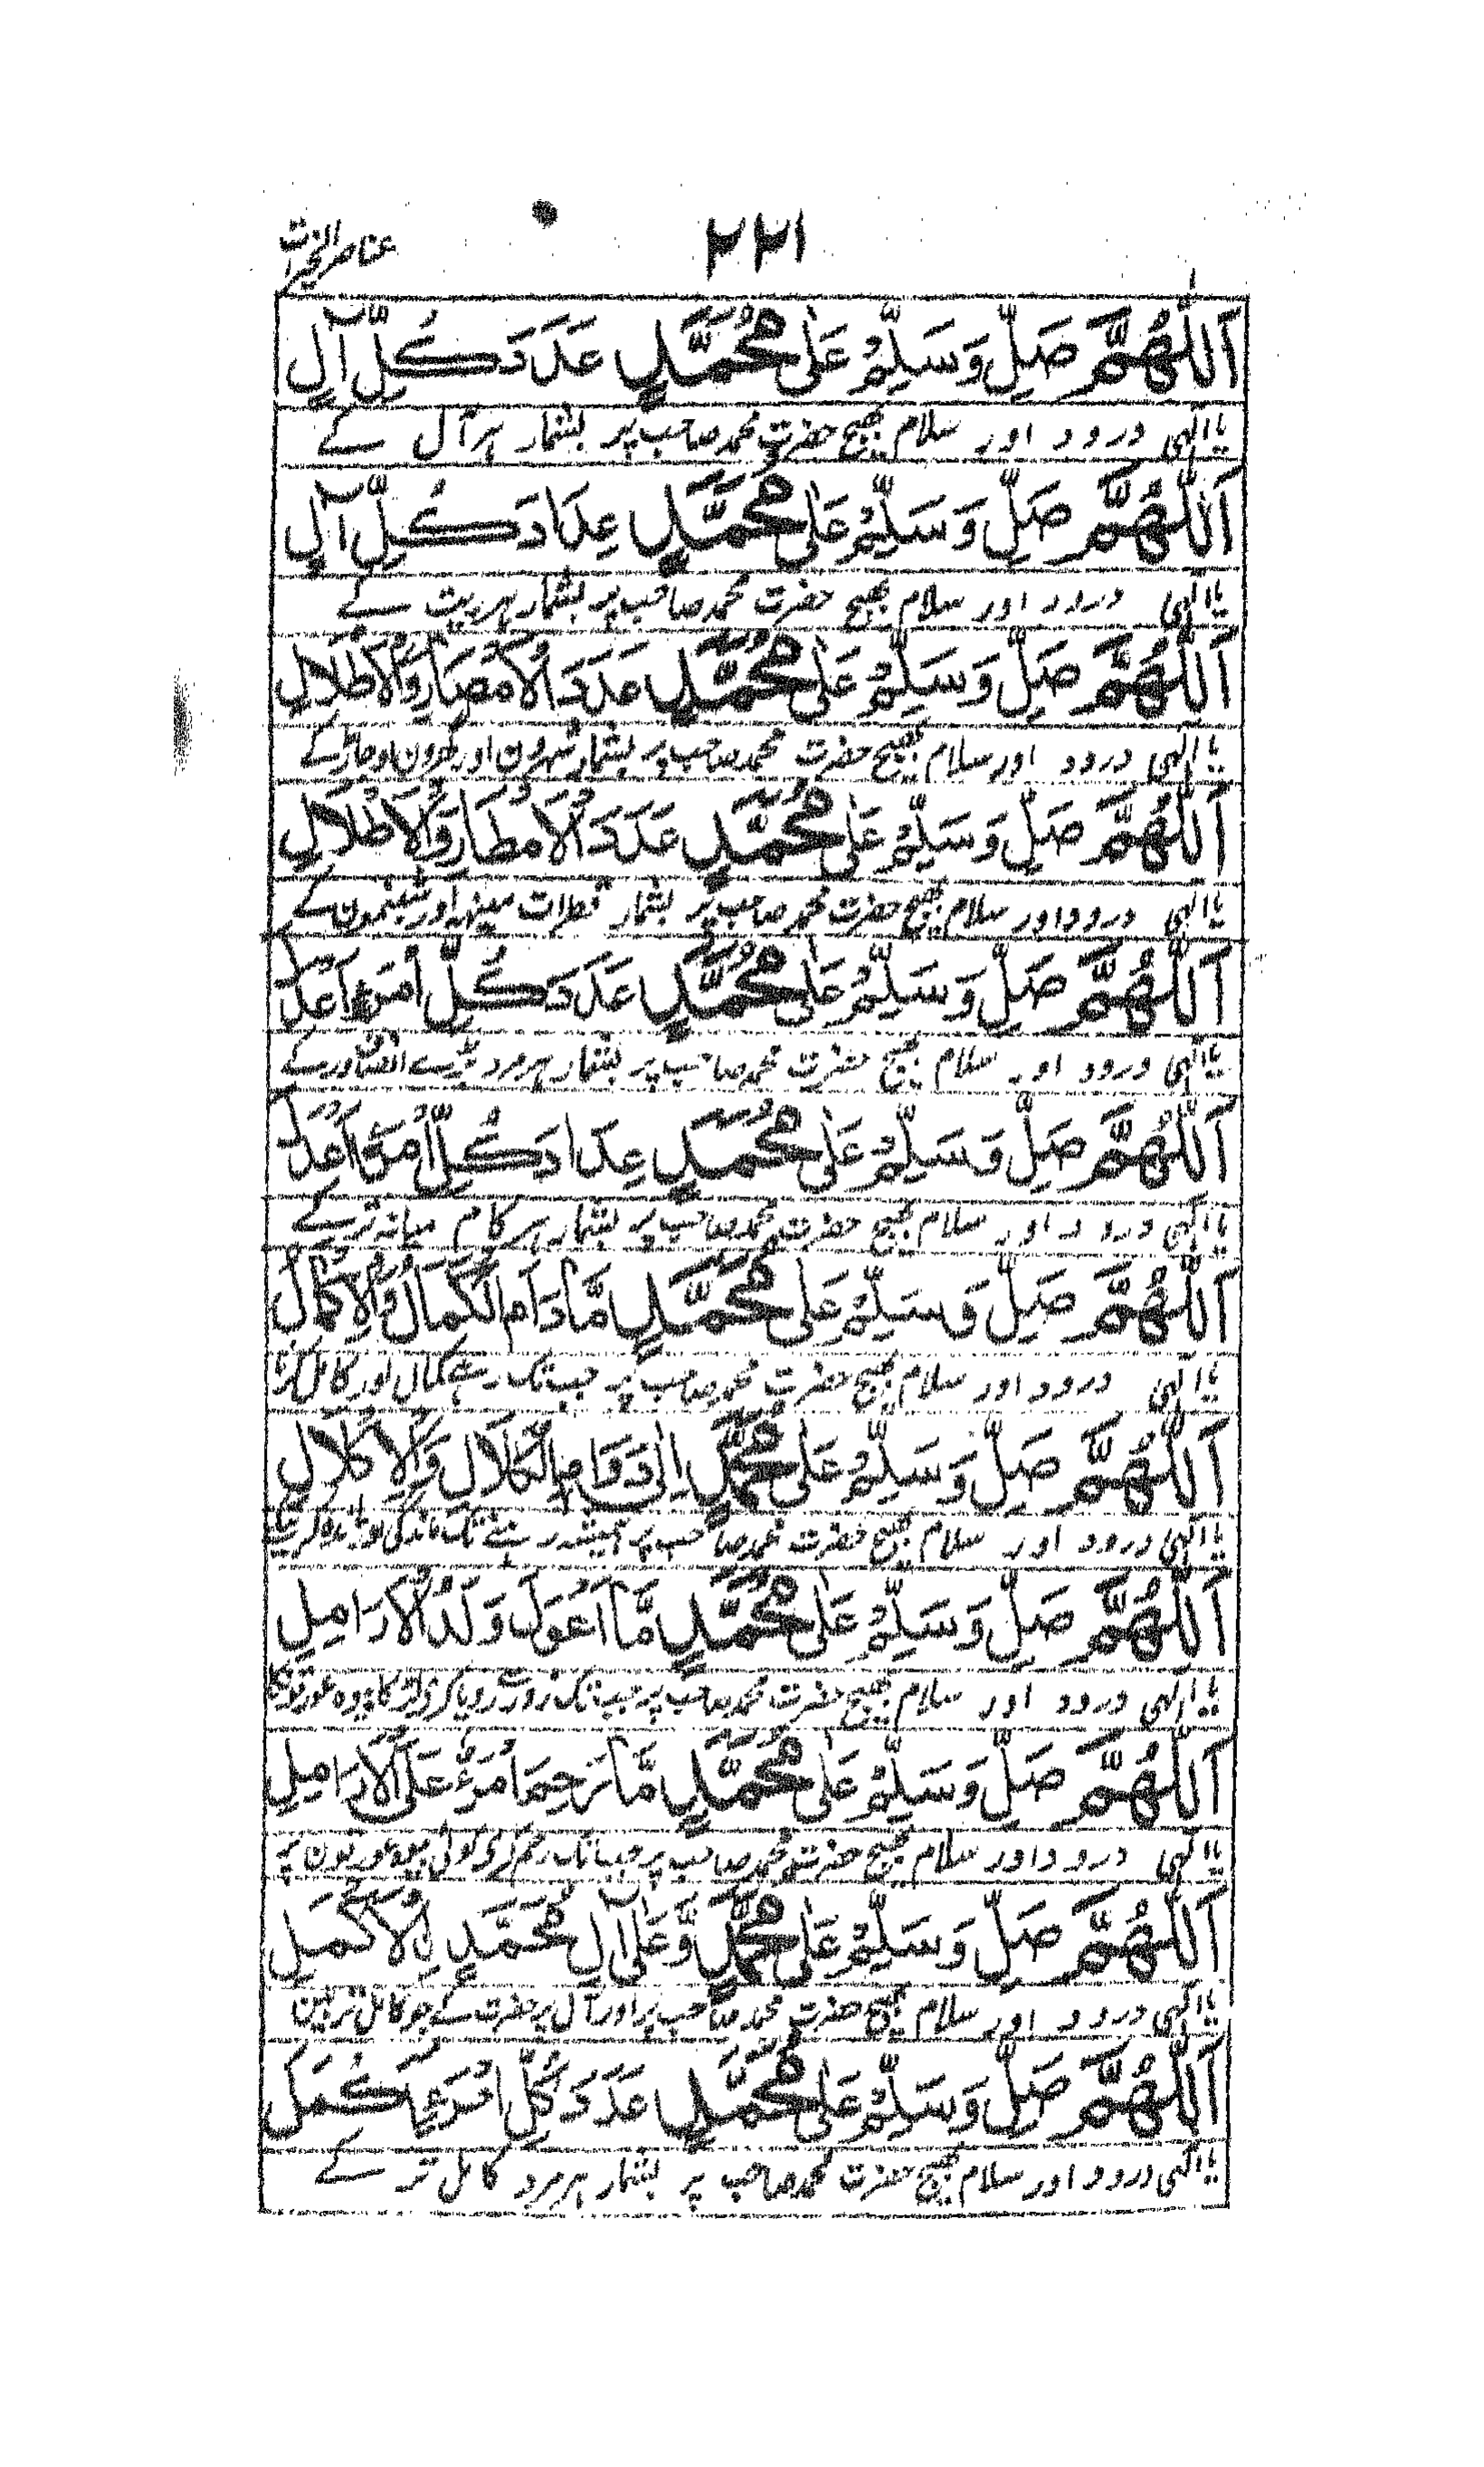 ۲۲۱
عناصر الخیرات
اَللّٰهُمَّ صَلِّ وَسَلِّمْ عَلٰى مُحَمَّدٍ عَدَدَ كُلِّ آلٍ
یا الٰہی درود اور سلام بھیج حضرت محمد صاحب پر بشمار ہر آل کے
اَللّٰهُمَّ صَلِّ وَسَلِّمْ عَلٰى مُحَمَّدٍ عِدَادَ كُلِّ آلٍ
یا الٰہی درود اور سلام بھیج حضرت محمد صاحب پر بشمار ہر بیت کے
اَللّٰهُمَّ صَلِّ وَسَلِّمْ عَلٰى مُحَمَّدٍ عَدَدَ الْاَمْصَارِ وَالْاَطْلَالِ
یا الٰہی درود اور سلام بھیج حضرت محمد صاحب پر بشمار شہرون اور گھرون اوجاڑ کے
اَللّٰهُمَّ صَلِّ وَسَلِّمْ عَلٰى مُحَمَّدٍ عَدَدَ الْاَمْطَارِ وَالْاَطْلَالِ
یا الٰہی درود اور سلام بھیج حضرت محمد صاحب پر بشمار قطرات مینہہ اور شبنمون کے
اَللّٰهُمَّ صَلِّ وَسَلِّمْ عَلٰى مُحَمَّدٍ عَدَدَ كُلِّ امْرَءٍ اَعْدَلَ
یا الٰہی درود اور سلام بھیج حضرت محمد صاحب پر بشمار ہر مرد بڑے انصاف ور کے
اَللّٰهُمَّ صَلِّ وَسَلِّمْ عَلٰى مُحَمَّدٍ عِدَادَ كُلِّ اَمْرٍ اَعْدَلَ
یا الٰہی درود اور سلام بھیج حضرت محمد صاحب پر بشمار ہر کام میانہ تر کے
اَللّٰهُمَّ صَلِّ وَسَلِّمْ عَلٰى مُحَمَّدٍ مَّا دَامَ الْكَمَالُ وَالْاِكْمَالُ
یا الٰہی درود اور سلام بھیج حضرت محمد صاحب پر جب تک رہے کمال اور کامل کرنا
اَللّٰهُمَّ صَلِّ وَسَلِّمْ عَلٰى مُحَمَّدٍ اِلٰى دَوَامِ الْكَلَالِ وَالْاِكْلَالِ
یا الٰہی درود اور سلام بھیج حضرت محمد صاحب پر ہمیشہ رہنے تک ماندگی اور
اَللّٰهُمَّ صَلِّ وَسَلِّمْ عَلٰى مُحَمَّدٍ مَّا اَعْوَلَ وَلَدُ الْاَرَامِلِ
یا الٰہی درود اور سلام بھیج حضرت محمد صاحب پر جب تک زور سے رویا کری لڑکا بیوہ عورتونکا
اَللّٰهُمَّ صَلِّ وَسَلِّمْ عَلٰى مُحَمَّدٍ مَّا تَرَحَّمَ امْرَءٌ عَلَى الْاَرَامِلِ
یا الٰہی درود اور سلام بھیج حضرت محمد صاحب پر جب تک رحم کرے کوئی بیوہ عورتون پر
اَللّٰهُمَّ صَلِّ وَسَلِّمْ عَلٰى مُحَمَّدٍ وَّعَلٰى آلِ مُحَمَّدٍ الْاَكْمَلِ
یا الٰہی درود اور سلام بھیج حضرت محمد صاحب پر اور آل پر حضرت کے جو کامل تر ہین
اَللّٰهُمَّ صَلِّ وَسَلِّمْ عَلٰى مُحَمَّدٍ عَدَدَ كُلِّ امْرَءٍ اَكْمَلَ
یا الٰہی درود اور سلام بھیج حضرت محمد صاحب پر بشمار ہر مرد کامل تر کے